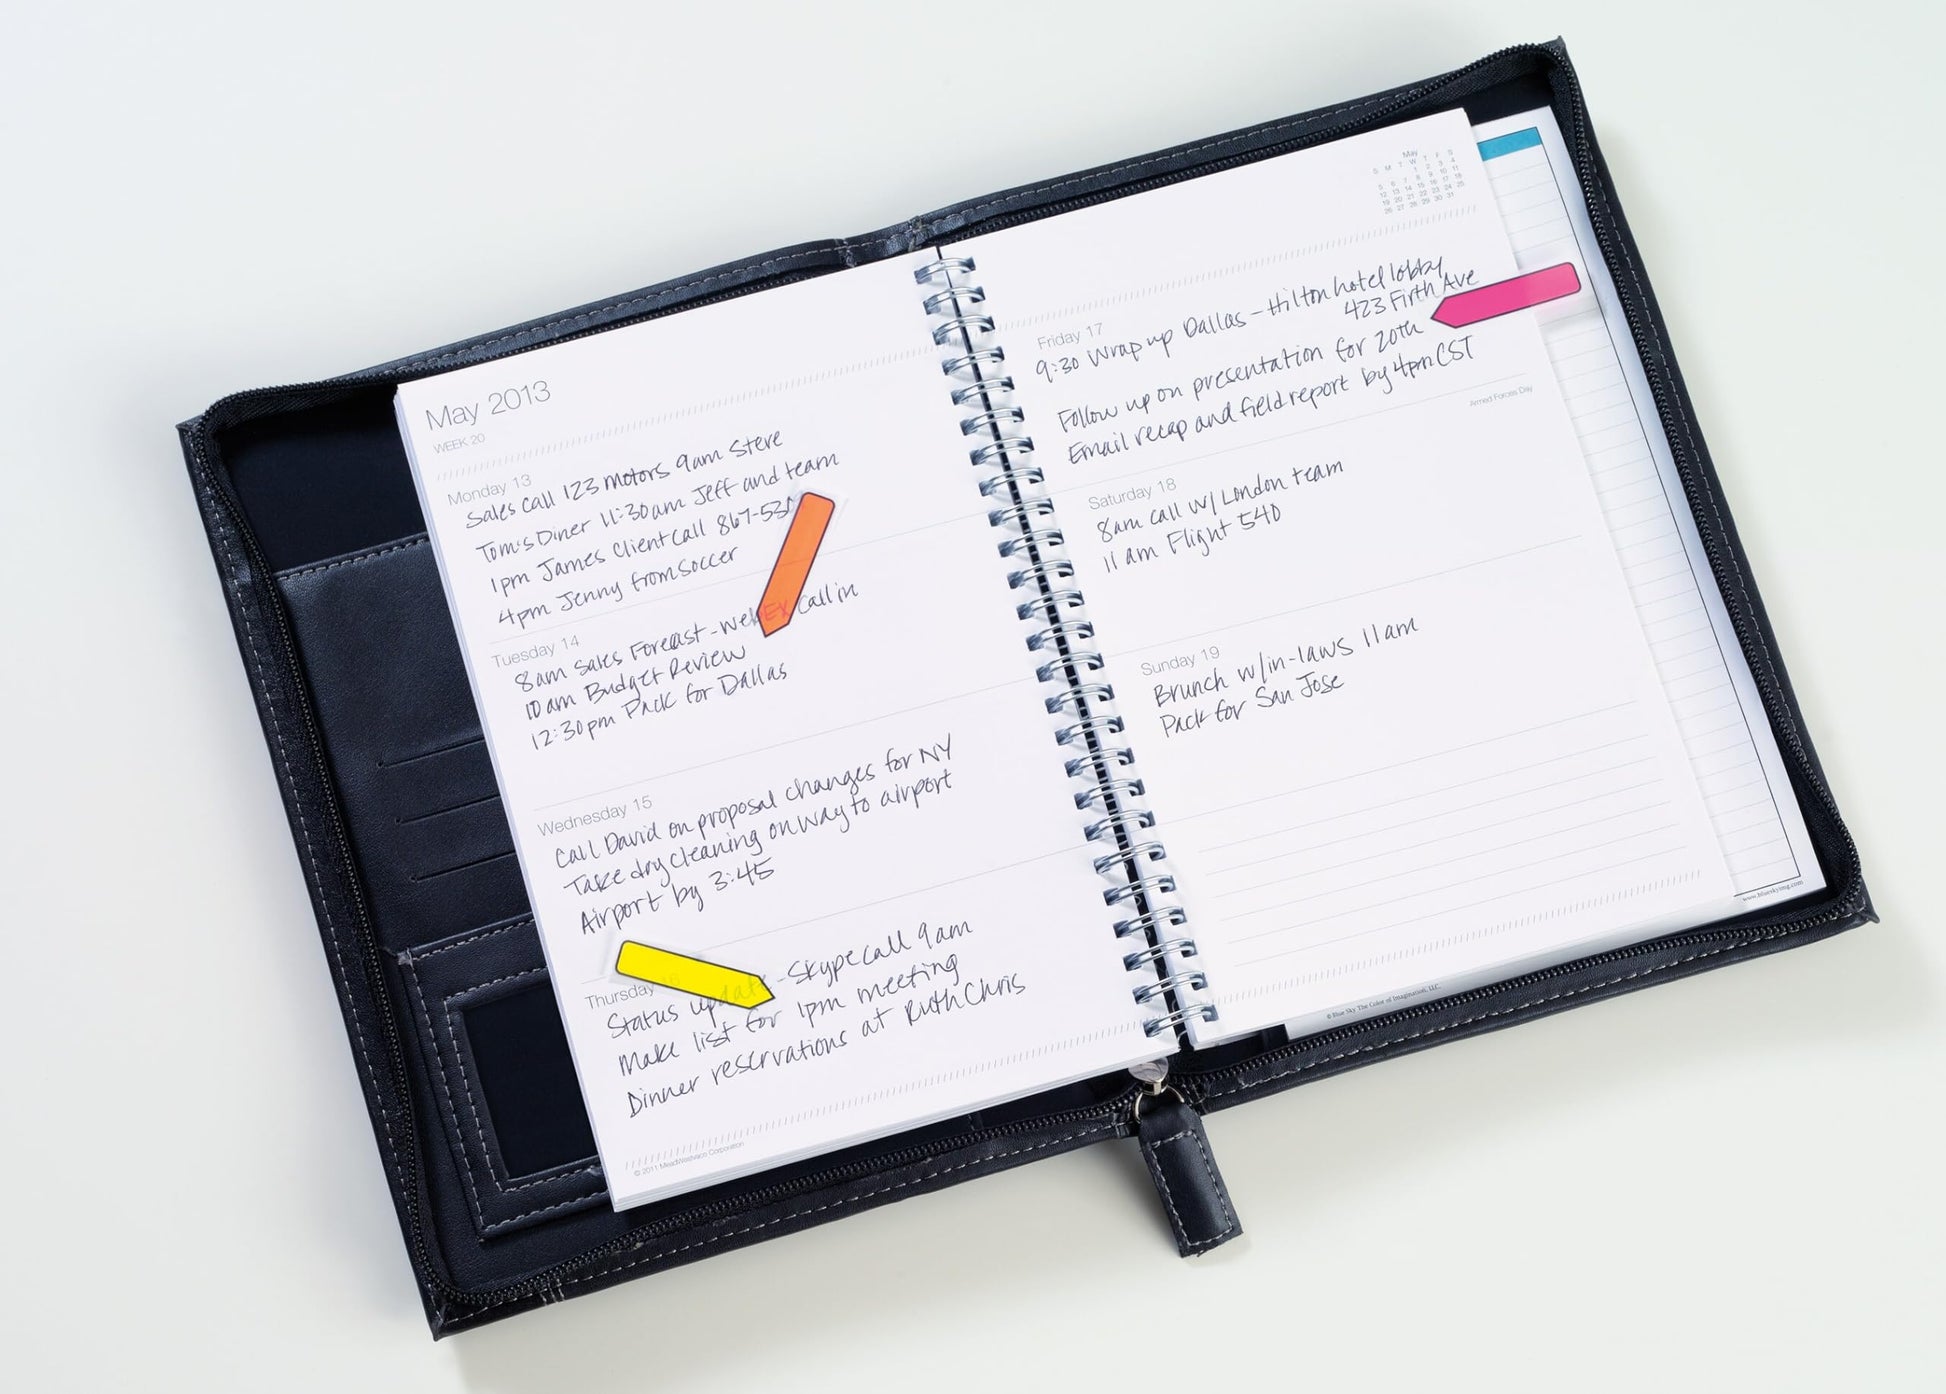 May 2013
WEEK 20
Monday 13
Sales call 123 motors 9am Steve
Tom's Diner 11:30am Jeff and team
1pm James Client call 867-530
4pm Jenny from soccer
Tuesday 14
8am Sales Forecast - WebEx call in
10am Budget Review
12:30pm Pack for Dallas
Wednesday 15
Call David on proposal changes for NY
Take dry cleaning on way to airport
Airport by 3:45
Thursday 16
Status update - Skype call 9am
Make list for 1pm meeting
Dinner reservations at Ruth Chris
© 2011 MeadWestvaco Corporation
May
S M T W T F S
1 2 3 4
5 6 7 8 9 10 11
12 13 14 15 16 17 18
19 20 21 22 23 24 25
26 27 28 29 30 31
Friday 17
9:30 Wrap up Dallas - Hilton hotel lobby
423 Firth Ave
Follow up on presentation for 20th
Email recap and field report by 4pm CST
Armed Forces Day
Saturday 18
8am call w/ London team
11am Flight 540
Sunday 19
Brunch w/in-laws 11am
Pack for San Jose
© Blue Sky The Color of Imagination, LLC.
www.blueskyimg.com